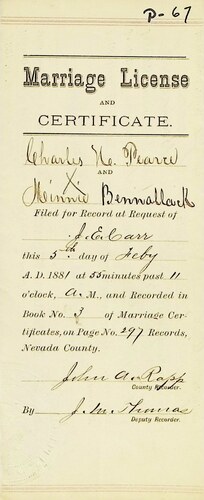 P-67
Marriage License
AND
CERTIFICATE.
Charles H. Pearce
AND
Minnie Bennallack
Filed for Record at Request of
J. E. Carr
this 5th day of Feby
A. D. 1881 at 55 minutes past 11
o'clock, A. M., and Recorded in
Book No. 3 of Marriage Cer-
tificates, on Page No. 297 Records,
Nevada County.
John A. Rapp
County Recorder.
By J. M. Thomas
Deputy Recorder.